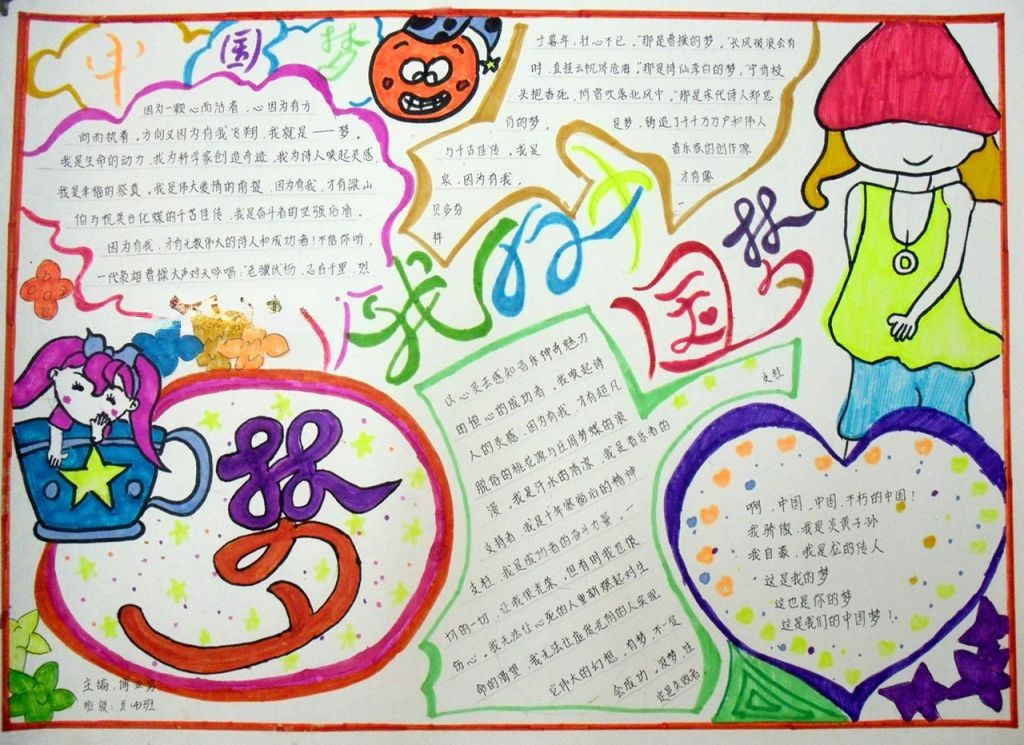 中国梦
因为一颗心而活着，心因为有方
向而执着，方向又因为有我飞翔，我就是——梦。
我是生命的动力，我为科学家创造奇迹，我为诗人唤起灵感，
我是幸福的祭奠，我是伟大爱情的前提，因为有我，才有梁山
伯与祝英台化蝶的千古佳传，我是奋斗者的坚强后盾，
因为有我，才有无数伟大的诗人和成功者！不信你听，
一代枭雄曹操大声对天吟唱：“老骥伏枥，志在千里，烈
士暮年，壮心不已。”那是曹操的梦。“长风破浪会有
时，直挂云帆济沧海。”那是诗仙李白的梦，“宁肯枝
头抱香死，何曾吹落北风中。”那是宋代诗人郑思
肖的梦，
是梦，铸造了千千万万户和伟人
与千古佳传，我是
音乐家的创作源
泉，因为有我，
才有像
贝多芬
一
样
我的中国梦
梦
以心灵去感知音乐神奇魅力
由恒心的成功者，我唤起诗
人的灵感，因为有我，才有超凡
脱俗的桃花源与庄周梦蝶的浪
漫，我是汗水的南凉，我是音乐者的
支持者，我是十年寒窗后的精神
支柱，我是成功者的奋斗力量，一
切的一切，让我很光荣，但有时我也很
伤心。我无法让心死的人重新燃起对生
命的渴望，我无法让虚度光阴的人实现
它伟大的幻想，有梦，不一定
会成功，没梦，注
定是失败者。
支柱
啊，中国，中国，不朽的中国！
我骄傲，我是炎黄子孙
我自豪，我是龙的传人
这是我的梦
这也是你的梦
这是我们的中国梦！
主编：傅
班级：五(4)班